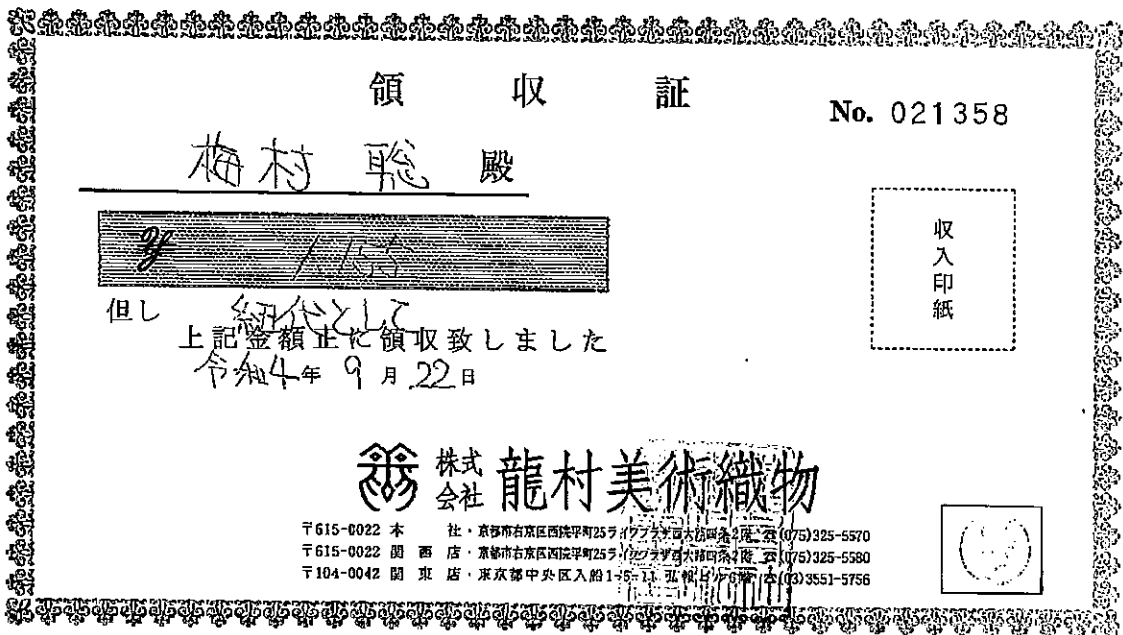 領収証
No. 021358
梅村 聡 殿
収入印紙
但し 紐代として
上記金額正に領収致しました
令和4年9月22日
株式会社 龍村美術織物
〒615-0022 本社・京都市右京区西院平町25ライフプラザ西大路四条2階 ☎(075)325-5570
〒615-0022 関西店・京都市右京区西院平町25ライフプラザ西大路四条2階 ☎(075)325-5580
〒104-0042 関東店・東京都中央区入船1-5-11 弘報ビル6階 ☎(03)3551-5756